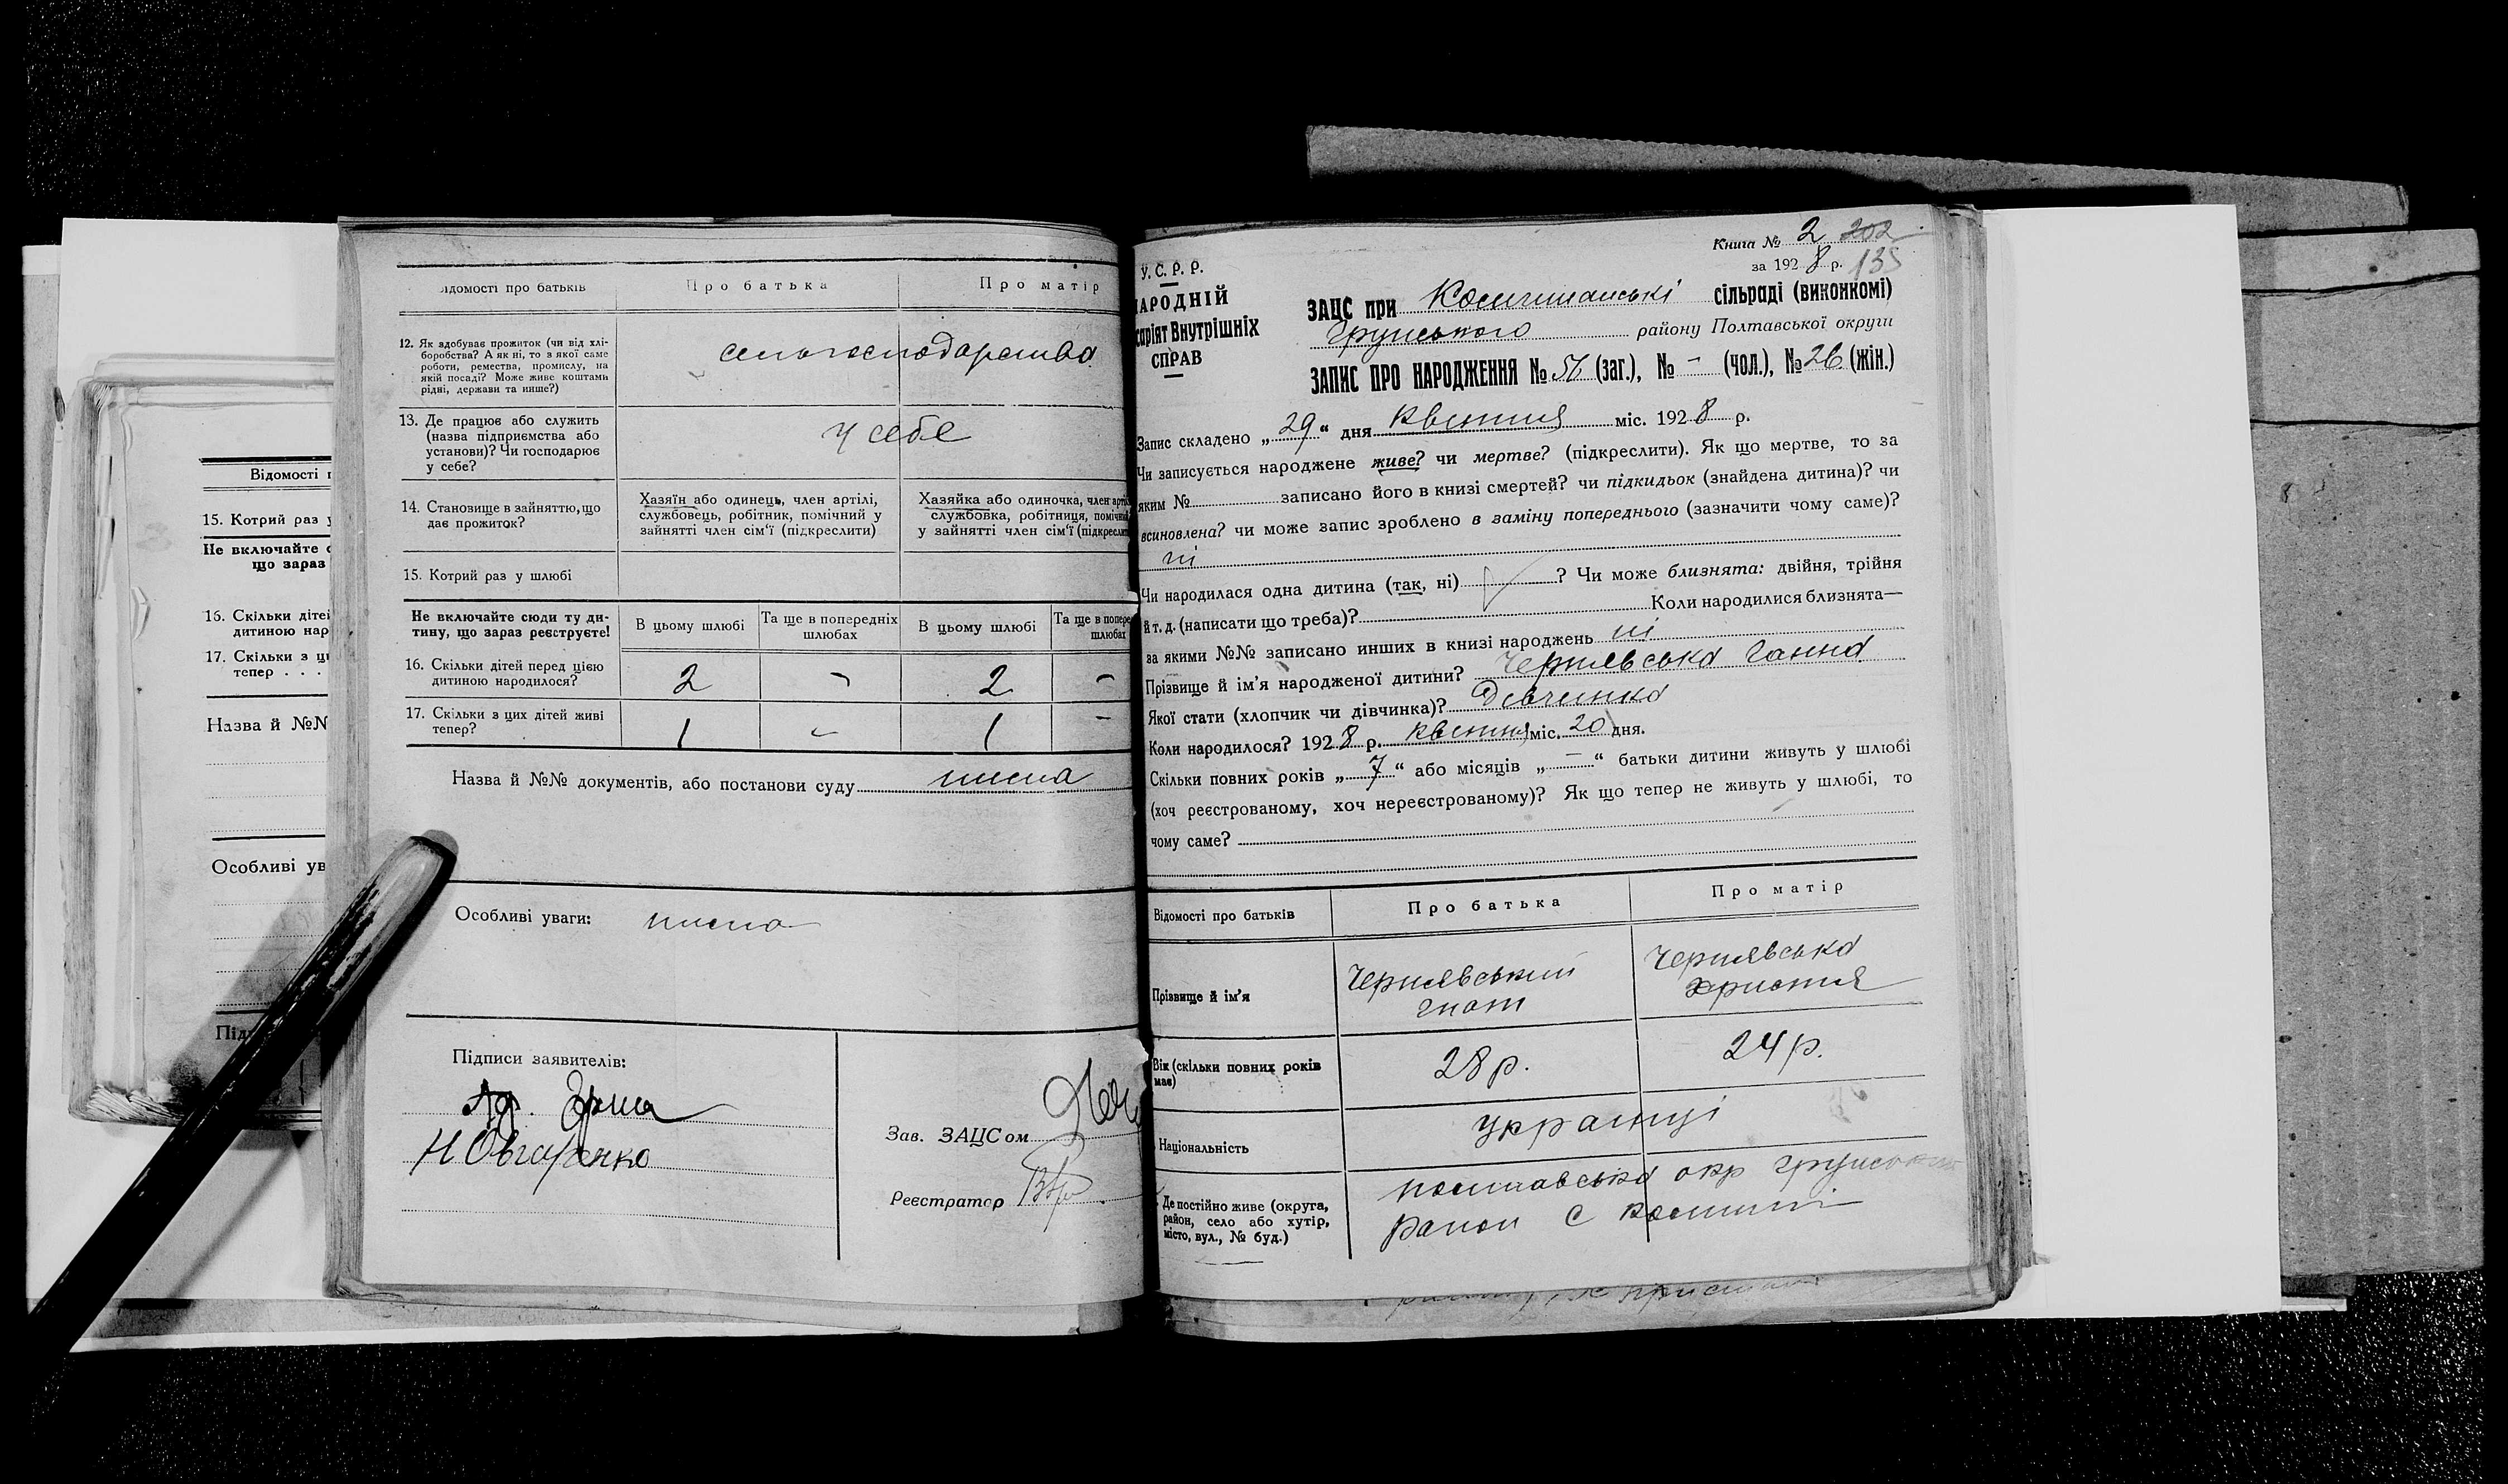 Відомості п
15. Котрий раз у
Не включайте с
що зараз
16. Скільки дітей
дитиною нар
17. Скільки з ци
тепер . . .
Назва й №№
Особливі ув
Під
відомості про батьків
Про батька
Про матір
12. Як здобуває прожиток (чи від хлі-
боробства? А як ні, то з якої саме
роботи, ремества, промислу, на
якій посаді? Може живе коштами
рідні, держави та инше?)
сельгосподарства
13. Де працює або служить
(назва підприємства або
установи)? Чи господарює
у себе?
у себе
14. Становище в зайняттю, що
дає прожиток?
Хазяїн або одинець, член артілі,
службовець, робітник, помічний у
зайнятті член сім'ї (підкреслити)
Хазяйка або одиночка, член артіл
службовка, робітниця, помічна
у зайнятті член сім'ї (підкреслит
15. Котрий раз у шлюбі
Не включайте сюди ту ди-
тину, що зараз реєструєте!
В цьому шлюбі
Та ще в попередніх
шлюбах
В цьому шлюбі
Та ще в попере
шлюбах
16. Скільки дітей перед цією
дитиною народилося?
2 - 2 -
17. Скільки з цих дітей живі
тепер?
1 - 1 -
Назва й №№ документів, або постанови суду нема
Особливі уваги: нема
Підписи заявителів:
Зав. ЗАЦСом
Реєстратор
Книга № 2 202
за 1928 р. 135
У.С.Р.Р.
НАРОДНІЙ
саріят Внутрішніх
СПРАВ
ЗАЦС при сільраді (виконкомі)
Грунського району Полтавської округи
ЗАПИС ПРО НАРОДЖЕННЯ № 56 (заг.), № - (чол.), № 26 (жін.)
Запис складено „29“ дня квітня міс. 1928 р.
Чи записується народжене живе? чи мертве? (підкреслити). Як що мертве, то за
яким № записано його в книзі смертей? чи підкидьок (знайдена дитина)? чи
всиновлена? чи може запис зроблено в заміну попереднього (зазначити чому саме)?
ні
Чи народилася одна дитина (так, ні) ? Чи може близнята: двійня, трійня
й т. д. (написати що треба)? Коли народилися близнята—
за якими №№ записано инших в книзі народжень ні
Прізвище й ім'я народженої дитини? Чернявська Ганна
Якої стати (хлопчик чи дівчинка)? Дівчинка
Коли народилось? 1928 р. квітня міс. 20 дня.
Скільки повних років „7“ або місяців „—“ батьки дитини живуть у шлюбі
(хоч реєстрованому, хоч нереєстрованому)? Як що тепер не живуть у шлюбі, то
чому саме?
Відомості про батьків
Про батька
Про матір
Прізвище й ім'я
Чернявський
Гнат
Чернявська
Христя
Вік (скільки повних років
має)
28 р.
24 р.
Національність
українці
Де постійно живе (округа,
район, село або хутір,
місто, вул., № буд.)
полтавська окр грунський
район с